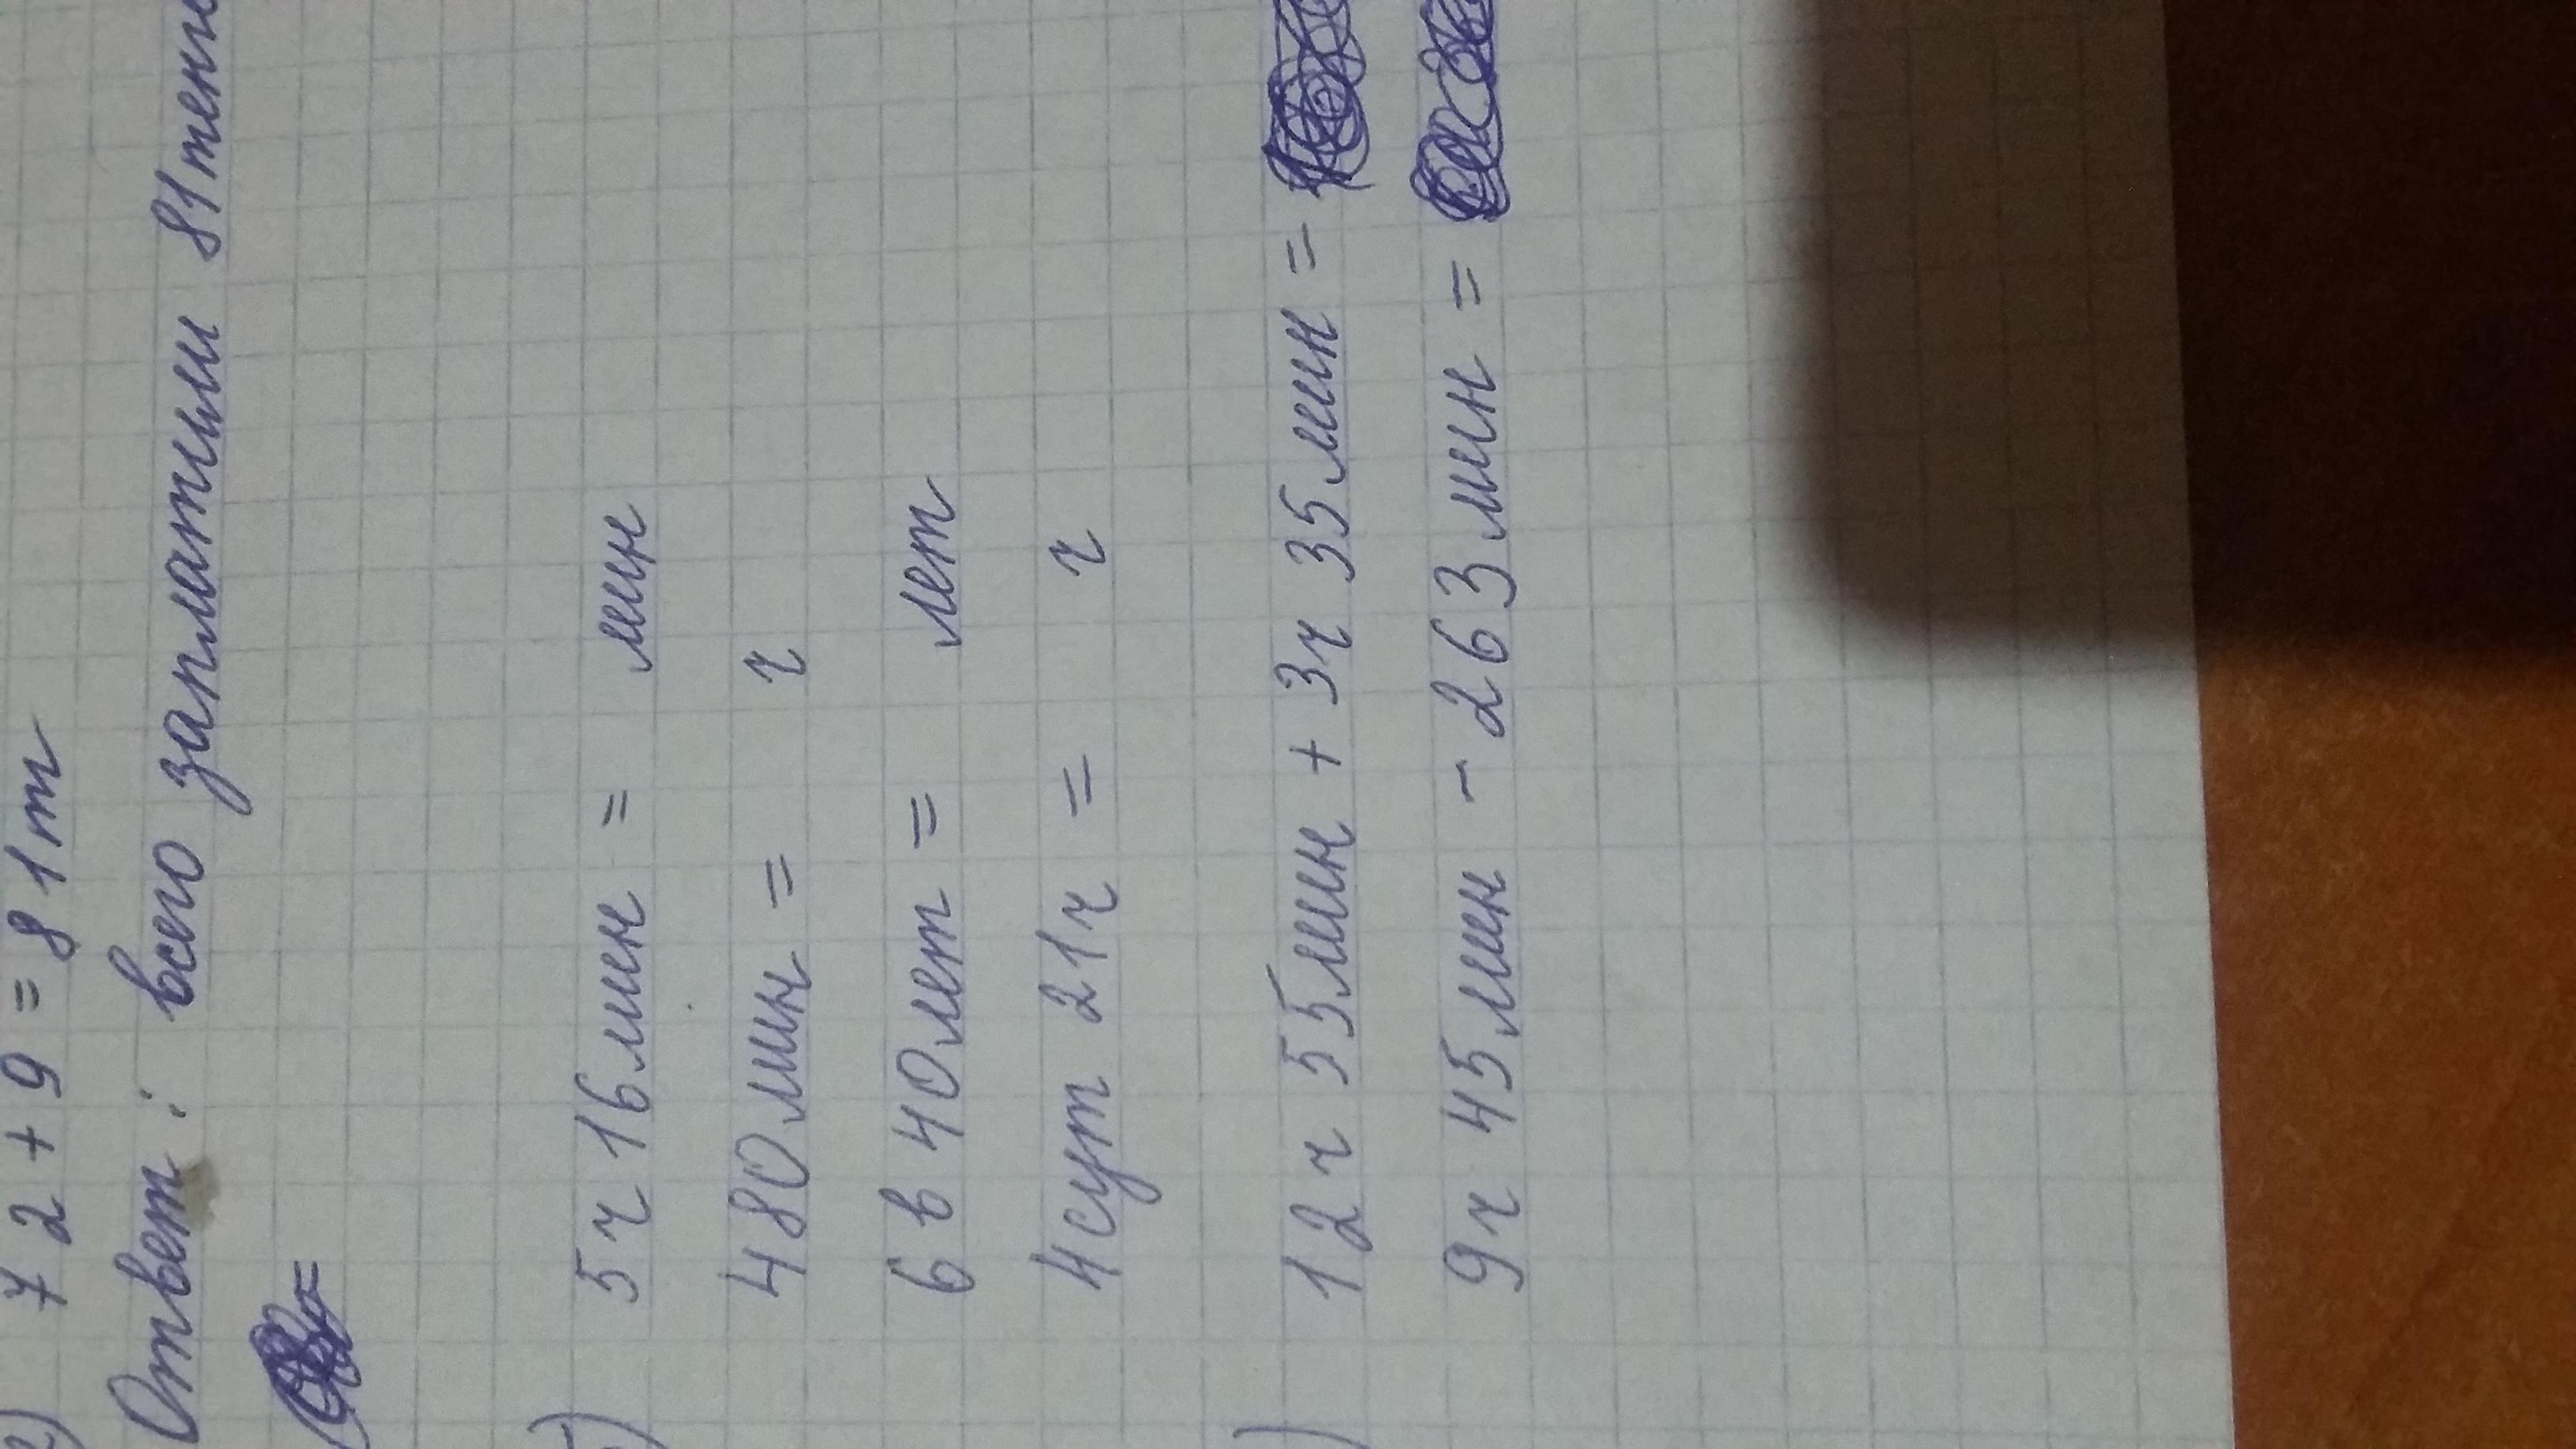 72+9=81т
Ответ: всего заплатили 81
=
5ч 16мин = мин
480мин = ч
6в 40лет = лет
4сут 21ч = ч
12ч 55мин + 3ч 35мин =
9ч 45мин - 263мин =